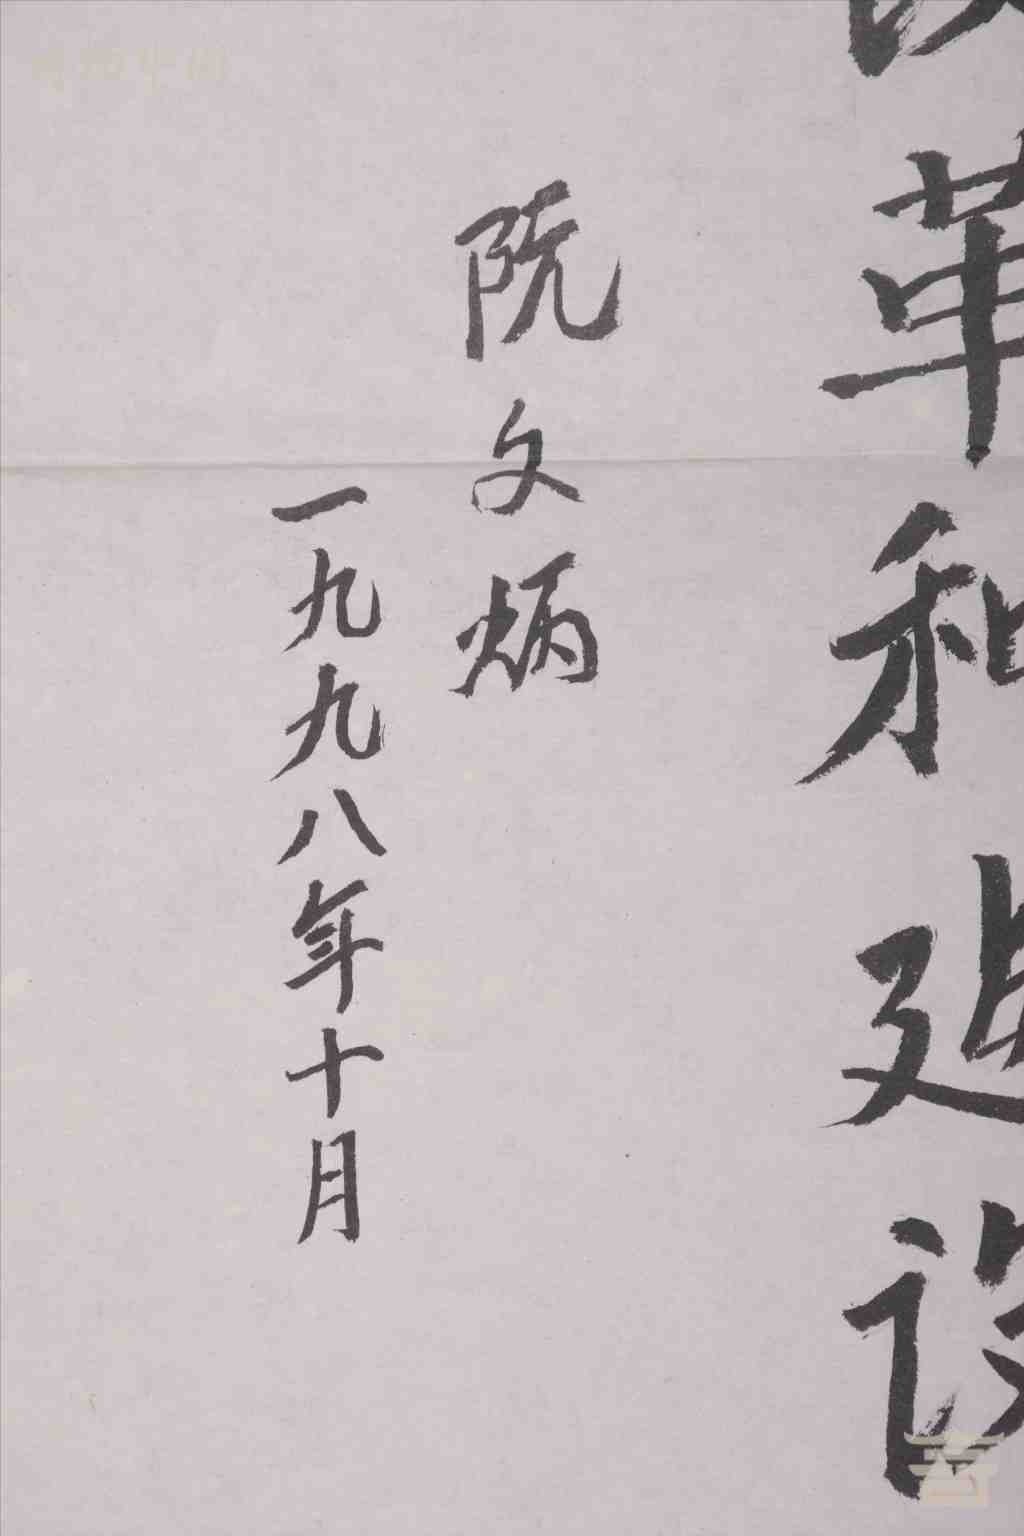 改革和建设
阮文炳
一九九八年十月